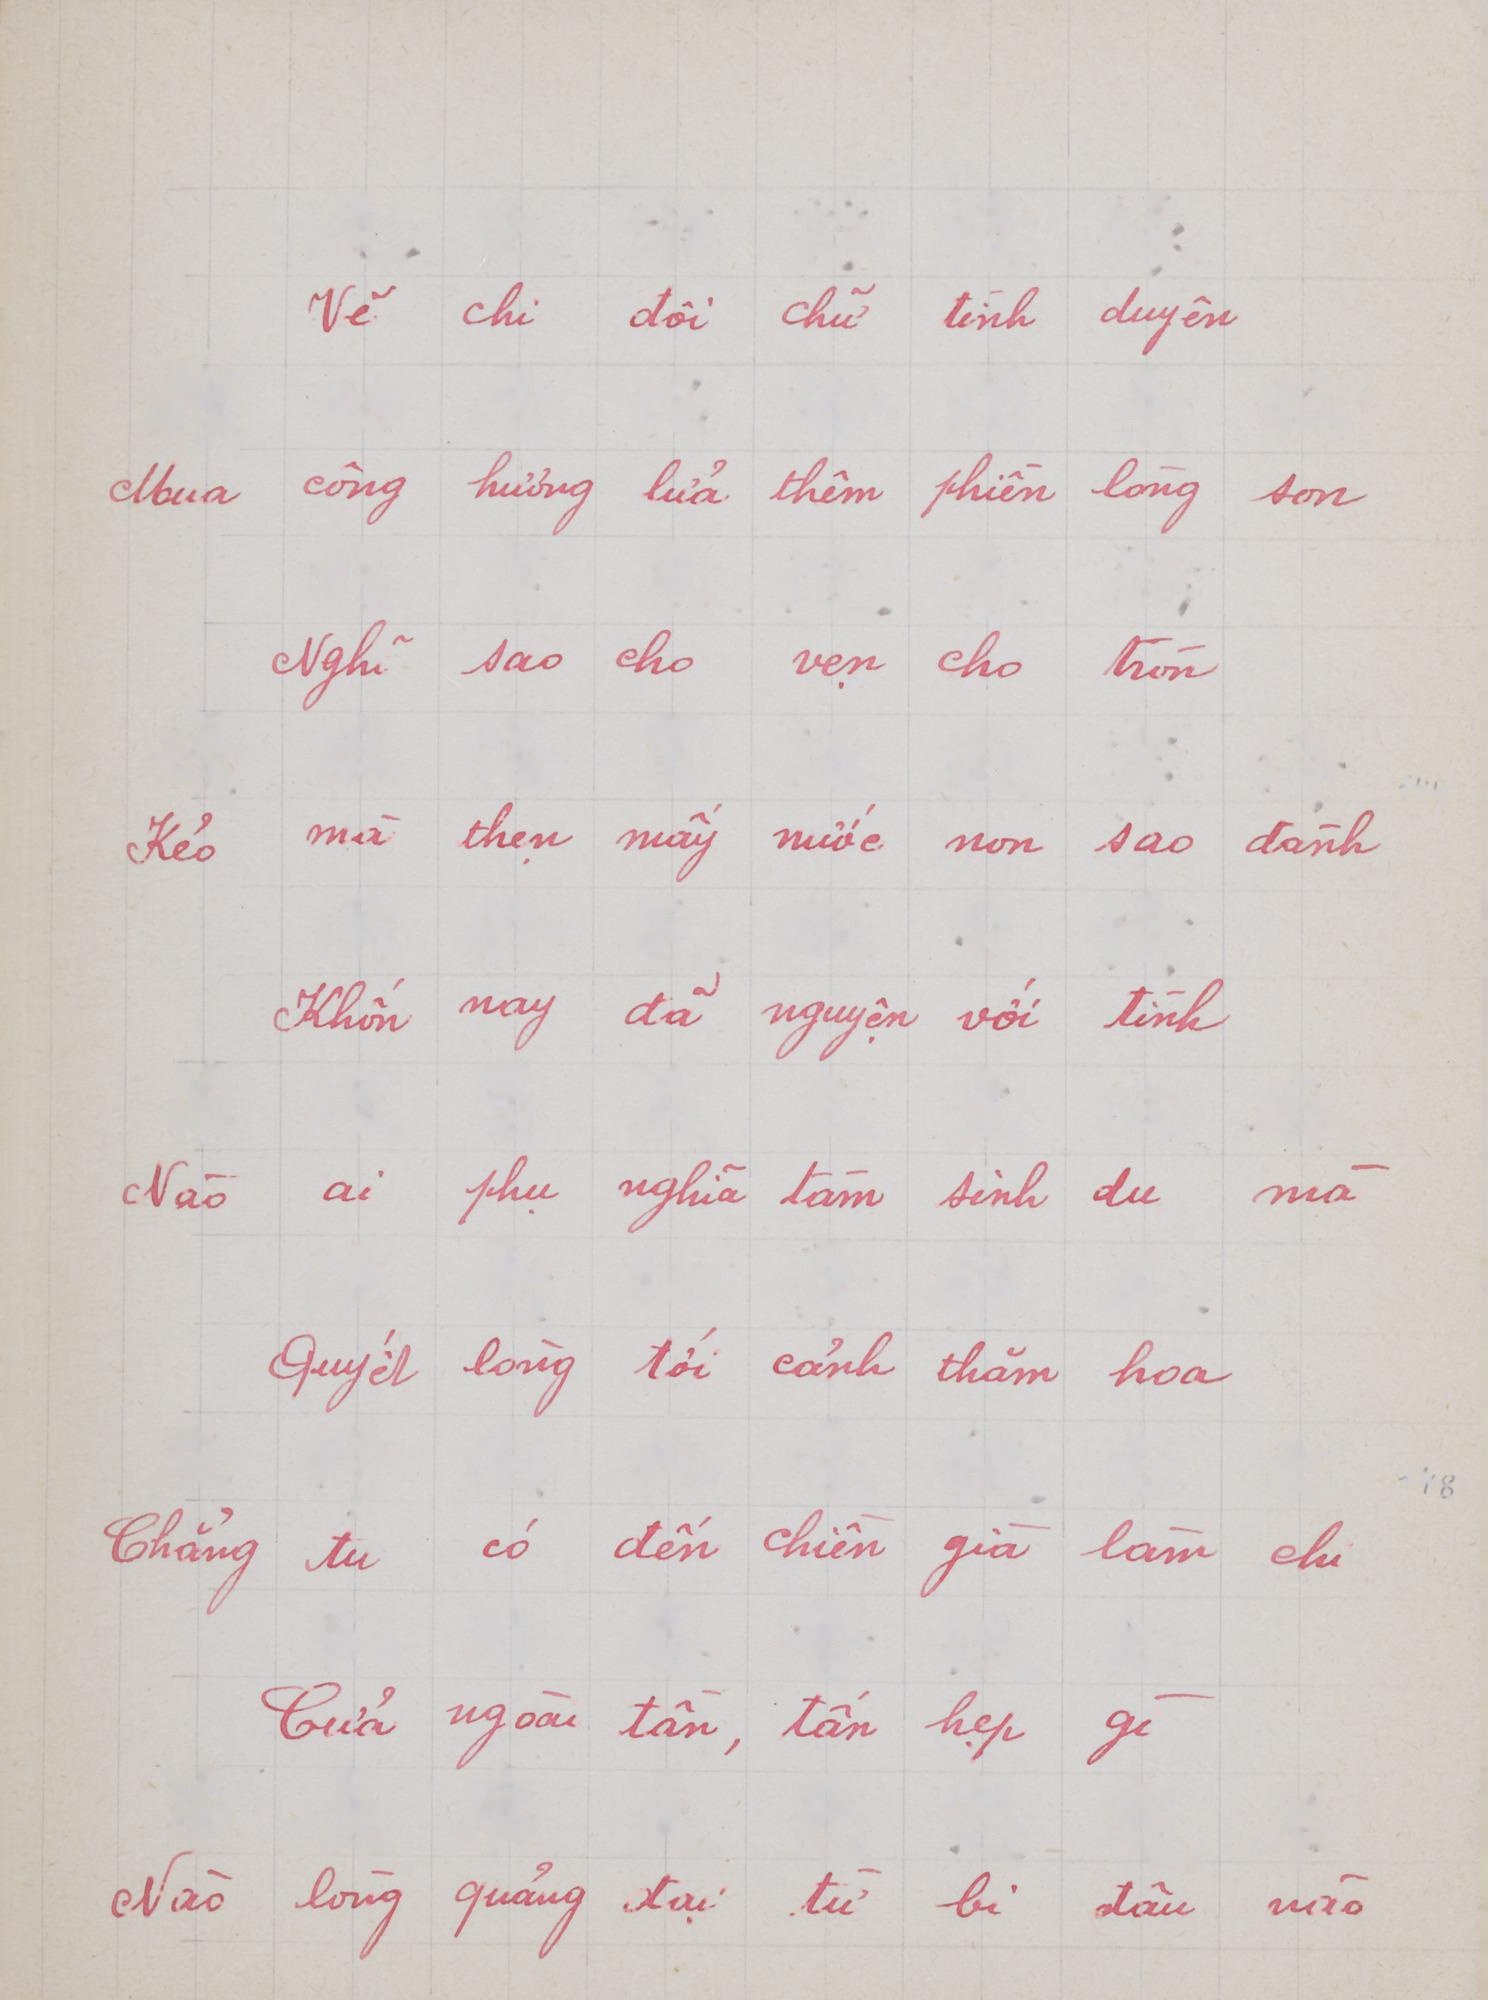 Vẽ chi đôi chữ tình duyên
Mua công hương lửa thêm phiền lòng son
Nghĩ sao cho vẹn cho tròn
Kẻo mà thẹn mấy nước non sao đành
Khốn nay đã nguyện với tình
Nào ai phụ nghĩa tàm sinh du mà
Quyết lòng tới cảnh thăm hoa
Chẳng tu có đến chiền già làm chi
Cửa ngoài tần, tấn hẹp gì
Nào lòng quảng đại từ bi đâu nào